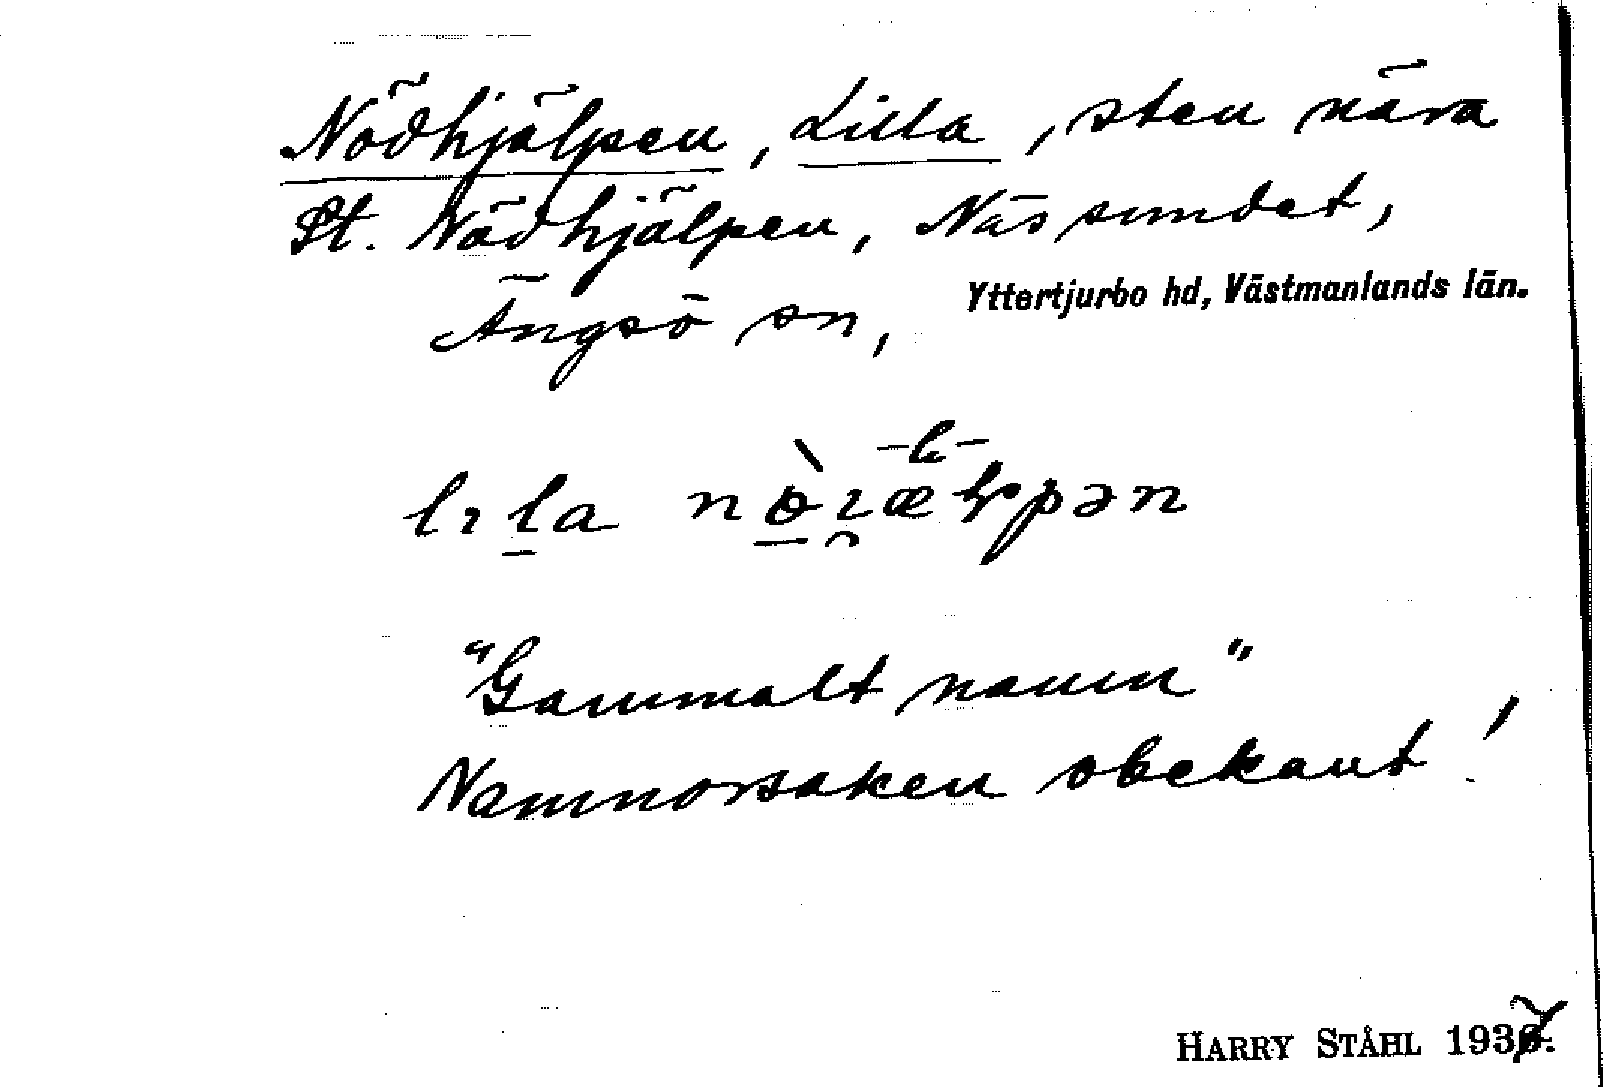 Nödhjälpen, Lilla, sten nära
St. Nödhjälpen, Näs sundet,
Ängsö sn, Yttertjurbo hd, Västmanlands län.
"Gammalt namn"
Namnorsaken obekant!
HARRY STÅHL 1937.